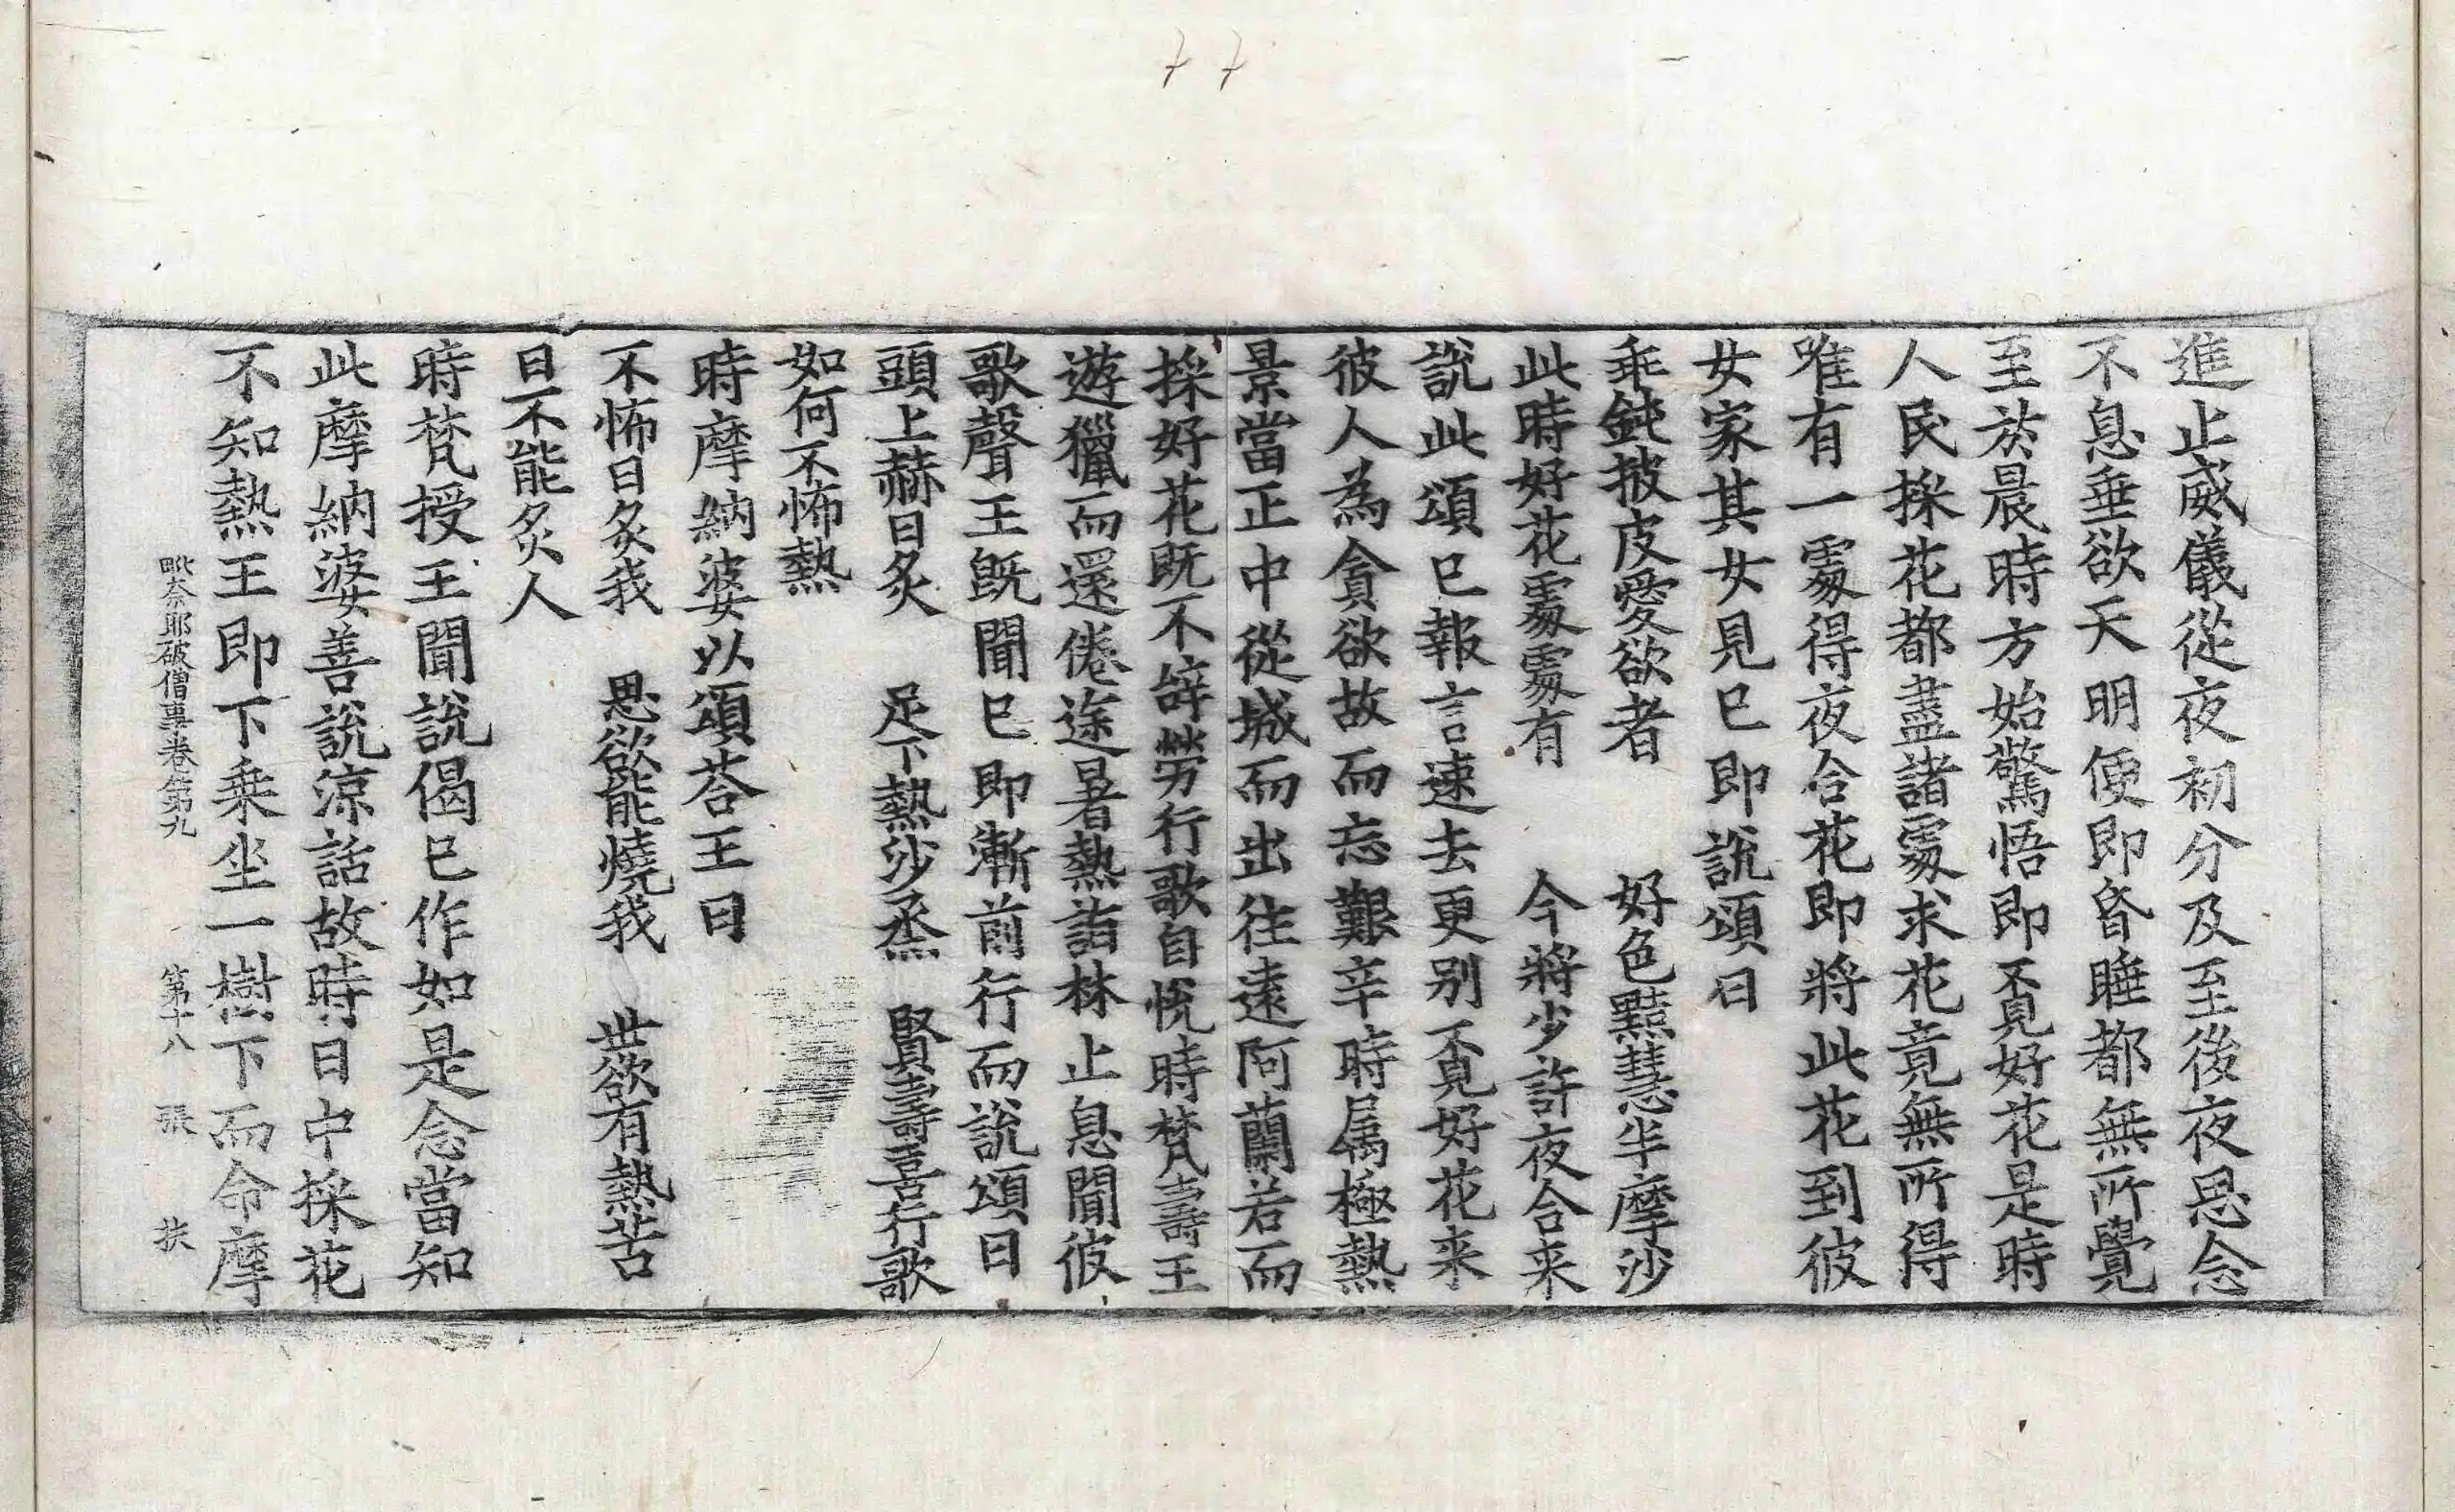 進止威儀從夜初分及至後夜思念
不息垂欲天明便即昏睡都無所覺
至於晨時方始驚悟即覓好花是時
人民採花都盡諸處求花竟無所得
唯有一處得夜合花即將此花到彼
女家其女見已即說頌曰
垂鈍披皮愛欲者　好色黠慧半摩沙
此時好花處處有　今將少許夜合来
說此頌已報言速去更別覓好花来
彼人為貪欲故而忘艱辛時屬極熱
景當正中從城而出往遠阿蘭若而
採好花既不辝勞行歌自悅時梵壽王
遊獵而還倦塗暑熱詣林止息聞彼
歌聲王既聞已即漸前行而說頌曰
頭上赫日炙　足下熱沙烝　賢壽喜行歌
如何不怖熱
時摩納婆以頌荅王曰
不怖日炙我　思欲能燒我　世欲有熱苦
日不能炙人
時梵授王聞說偈已作如是念當知
此摩納婆善說涼話故時日中採花
不知熱王即下乗坐一樹下而命摩
毗奈耶破僧事卷第九　第十八　張　扶